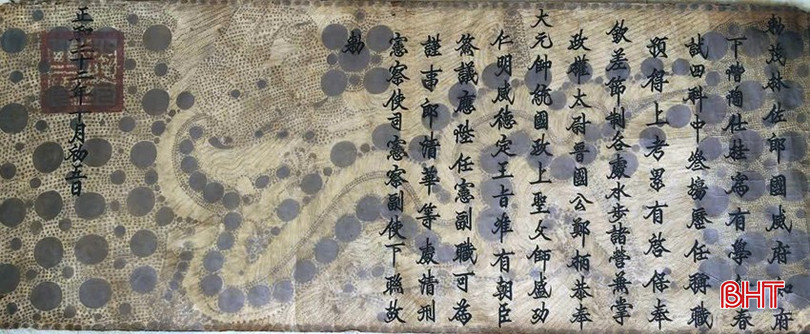 勅茂林佐郎國威府知府
下階陶仕桂爲有學仕春
試四科中叁塲歷任稱職
預得上考累有啓保奉
欽差節制各處水步諸營兼掌
政權太尉晋國公鄭柄恭奉
大元帥統國政上聖父師盛功
仁明威德定王旨准有朝臣
僉議應陞任憲副職可爲
謹事郎清華等處清刑
憲察使司憲察副使下聯故
勅
正和二十二年十月初五日
BHT